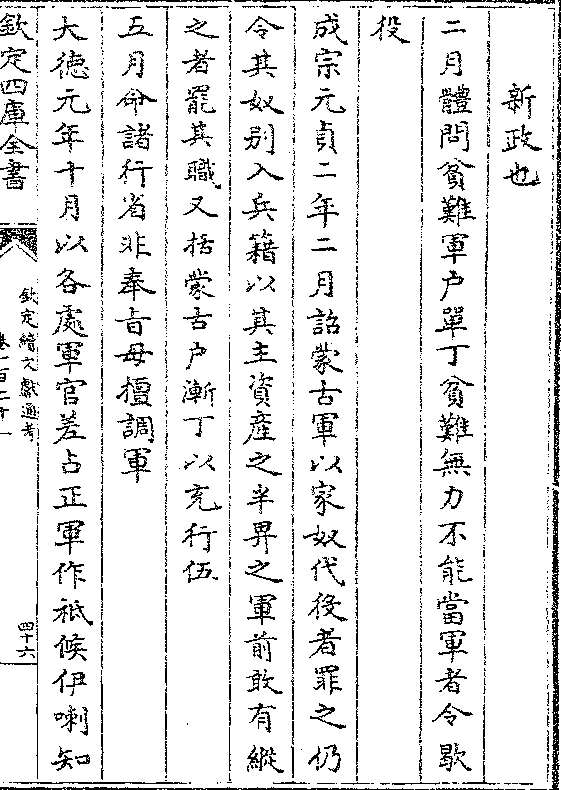 新政也
二月體問貧難軍户單丁貧難無力不能當軍者令歇
役
成宗元貞二年二月詔蒙古軍以家奴代役者罪之仍
令其奴别入兵籍以其主資産之半畀之軍前敢有縱
之者罷其職又括蒙古户漸丁以充行伍
五月命諸行省非奉旨毋擅調軍
大徳元年十月以各處軍官差占正軍作祗候伊喇知
欽定四庫全書
欽定續文獻通考
卷一百二十一
四十六